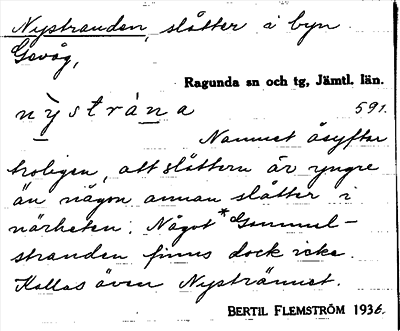 Nystranden, slåtter i byn
Gevåg,
Ragunda sn och tg, Jämtl. län.
nỳstràna 591.
Namnet åsyftar
troligen, att slåttern är yngre
än någon annan slåtter i
närheten. Något *Gammul-
stranden finns dock icke.
Kallas även Nysträunet.
BERTIL FLEMSTRÖM 1936.